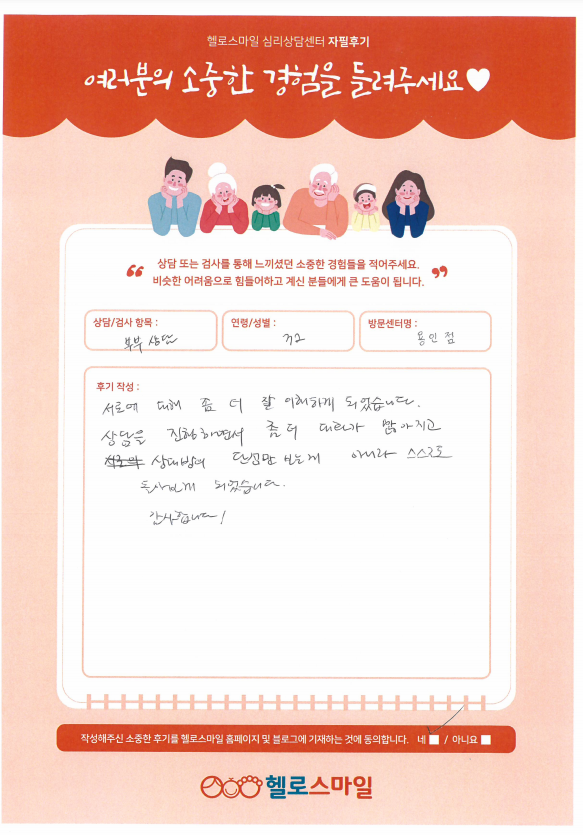 헬로스마일 심리상담센터 자필후기
여러분의 소중한 경험을 들려주세요
상담 또는 검사를 통해 느끼셨던 소중한 경험들을 적어주세요.
비슷한 어려움으로 힘들어하고 계신 분들에게 큰 도움이 됩니다.
상담/검사 항목 :
부부 상담
연령/성별 :
방문센터명 :
용인점
후기 작성 :
서로에 대해 좀 더 잘 이해하게 되었습니다.
상담을 진행하면서 좀 더 대화가 많아지고
상대방의 단점만 보는게 아니라 스스로도
돌아보게 되었습니다.
감사합니다!
작성해주신 소중한 후기를 헬로스마일 홈페이지 및 블로그에 기재하는 것에 동의합니다. 네 / 아니요
헬로스마일